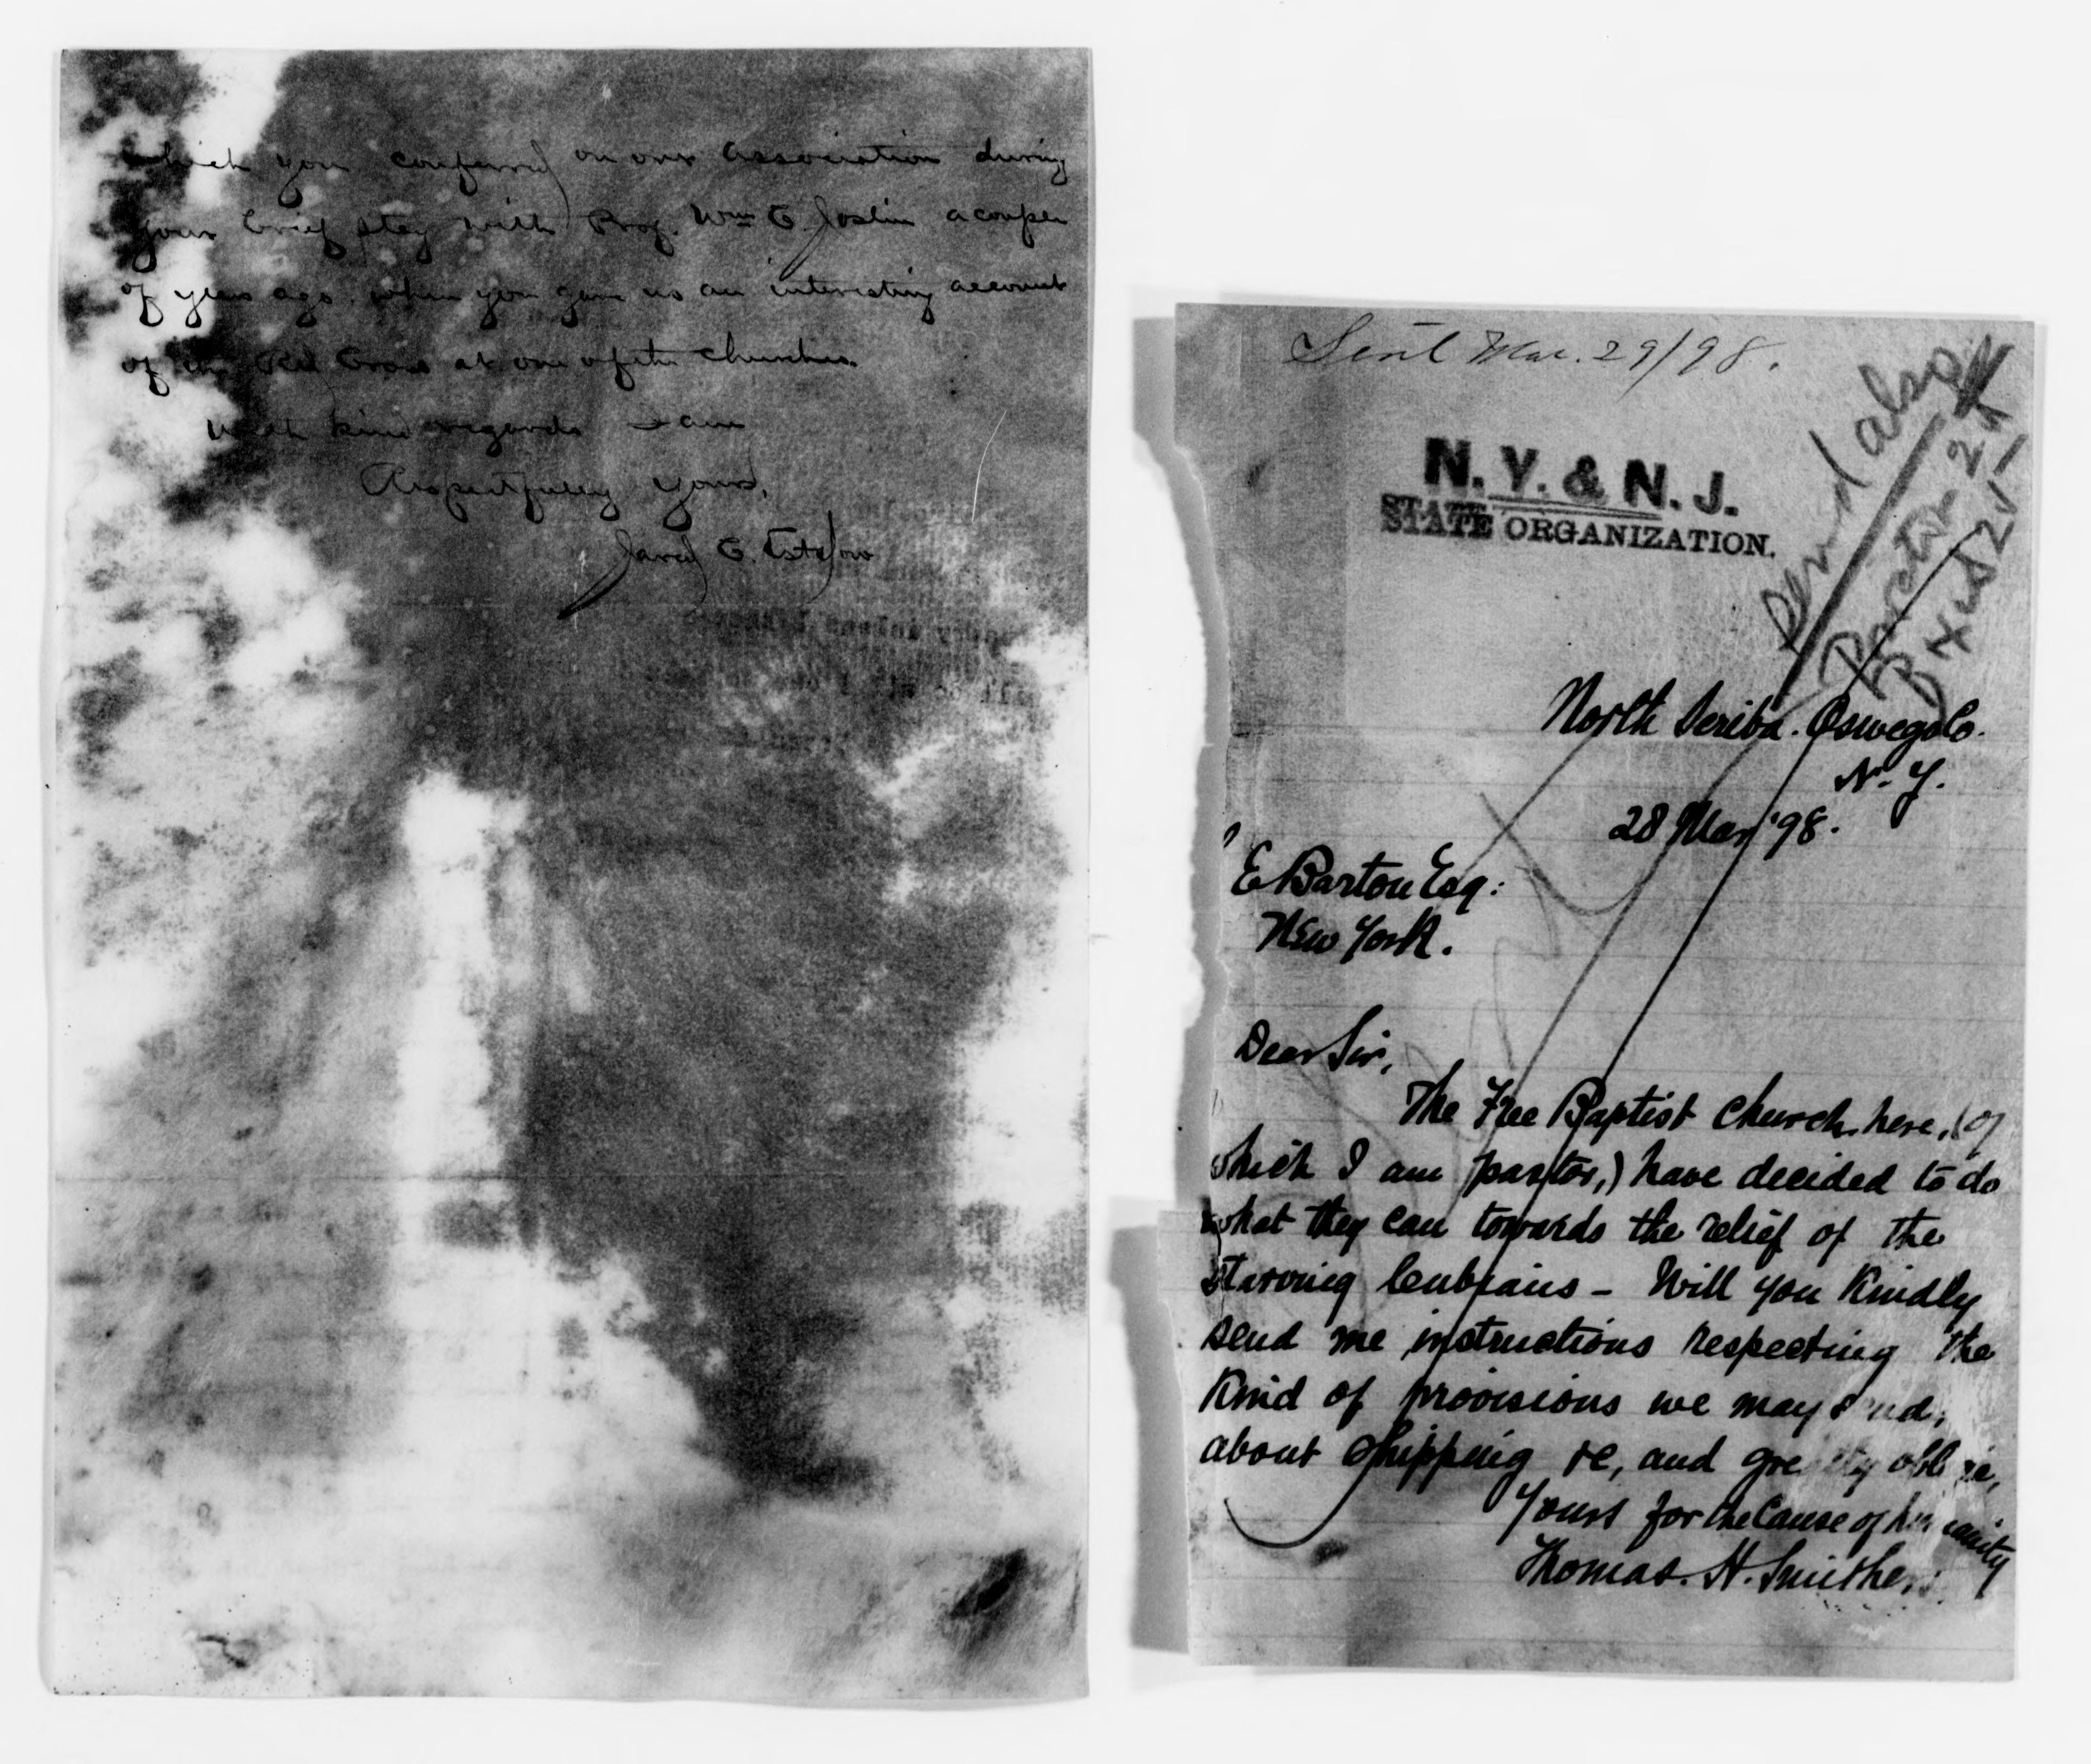 which you conferred on our association during
your brief stay with Prof. Wm E. Joslin a couple
of years ago, when you gave us an interesting account
of the Red Cross at one of the churches.
With kind regards I am
Respectfully yours,
Jared E.
Sent Mar. 29/98.
N. Y. & N. J.
STATE ORGANIZATION.
Send also
North Scriba. Oswego Co.
N. Y.
28 Mar '98.
E Barton Esq:
New York.
Dear Sir,
The Free Baptist Church here, (of
which I am pastor,) have decided to do
what they can towards the relief of the
starving Cubians - Will you kindly
send me instructions respecting the
kind of provisions we may send,
about shipping &c, and greatly oblige,
Yours for the Cause of humanity
Thomas. H. Smithers